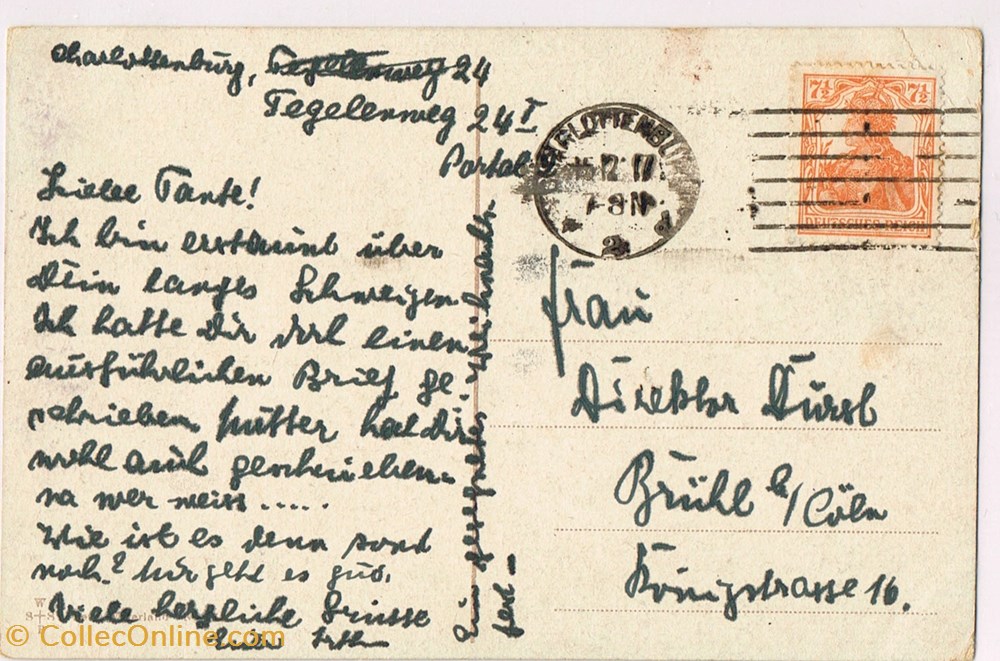 Charlottenburg, Tegelenweg 24
Tegelenweg 24 I
Portal
Liebe Tante!
Ich bin erstaunt über
Dein langes Schweigen.
Ich hatte Dir doch einen
ausführlichen Brief ge-
schrieben. Mutter hat Dir
wohl auch geschrieben.
na wer weiss.....
Wie ist es denn sonst
noch? Mir geht es gut.
Viele herzliche Grüsse
Ein gesegnetes Weihnachts-
fest –
CHARLOTTENBURG
12 17
7-8N
2
d
7½ 7½
DEUTSCHES REICH
Frau
Direktor Dürst
Brühl b/Cöln
Königstrasse 16.
© CollecOnline.com